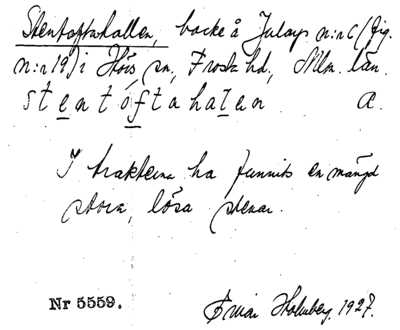 Stentoftahallen, backe å Julaps n:r 6 (fig.
n:r 19) i Hörs sn, Frosta hd, Mlm. län.
stentoftahalen a.
I trakterna ha funnits en mängd
stora, lösa stenar.
Nr 5559. Holmberg. 1927.